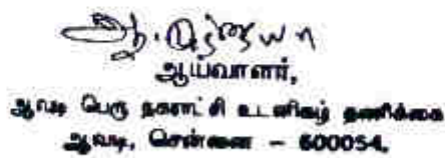 ஆய்வாளர்,
ஆவடி பெரு நகராட்சி உடனிகழ் தணிக்கை
ஆவடி, சென்னை - 600054.